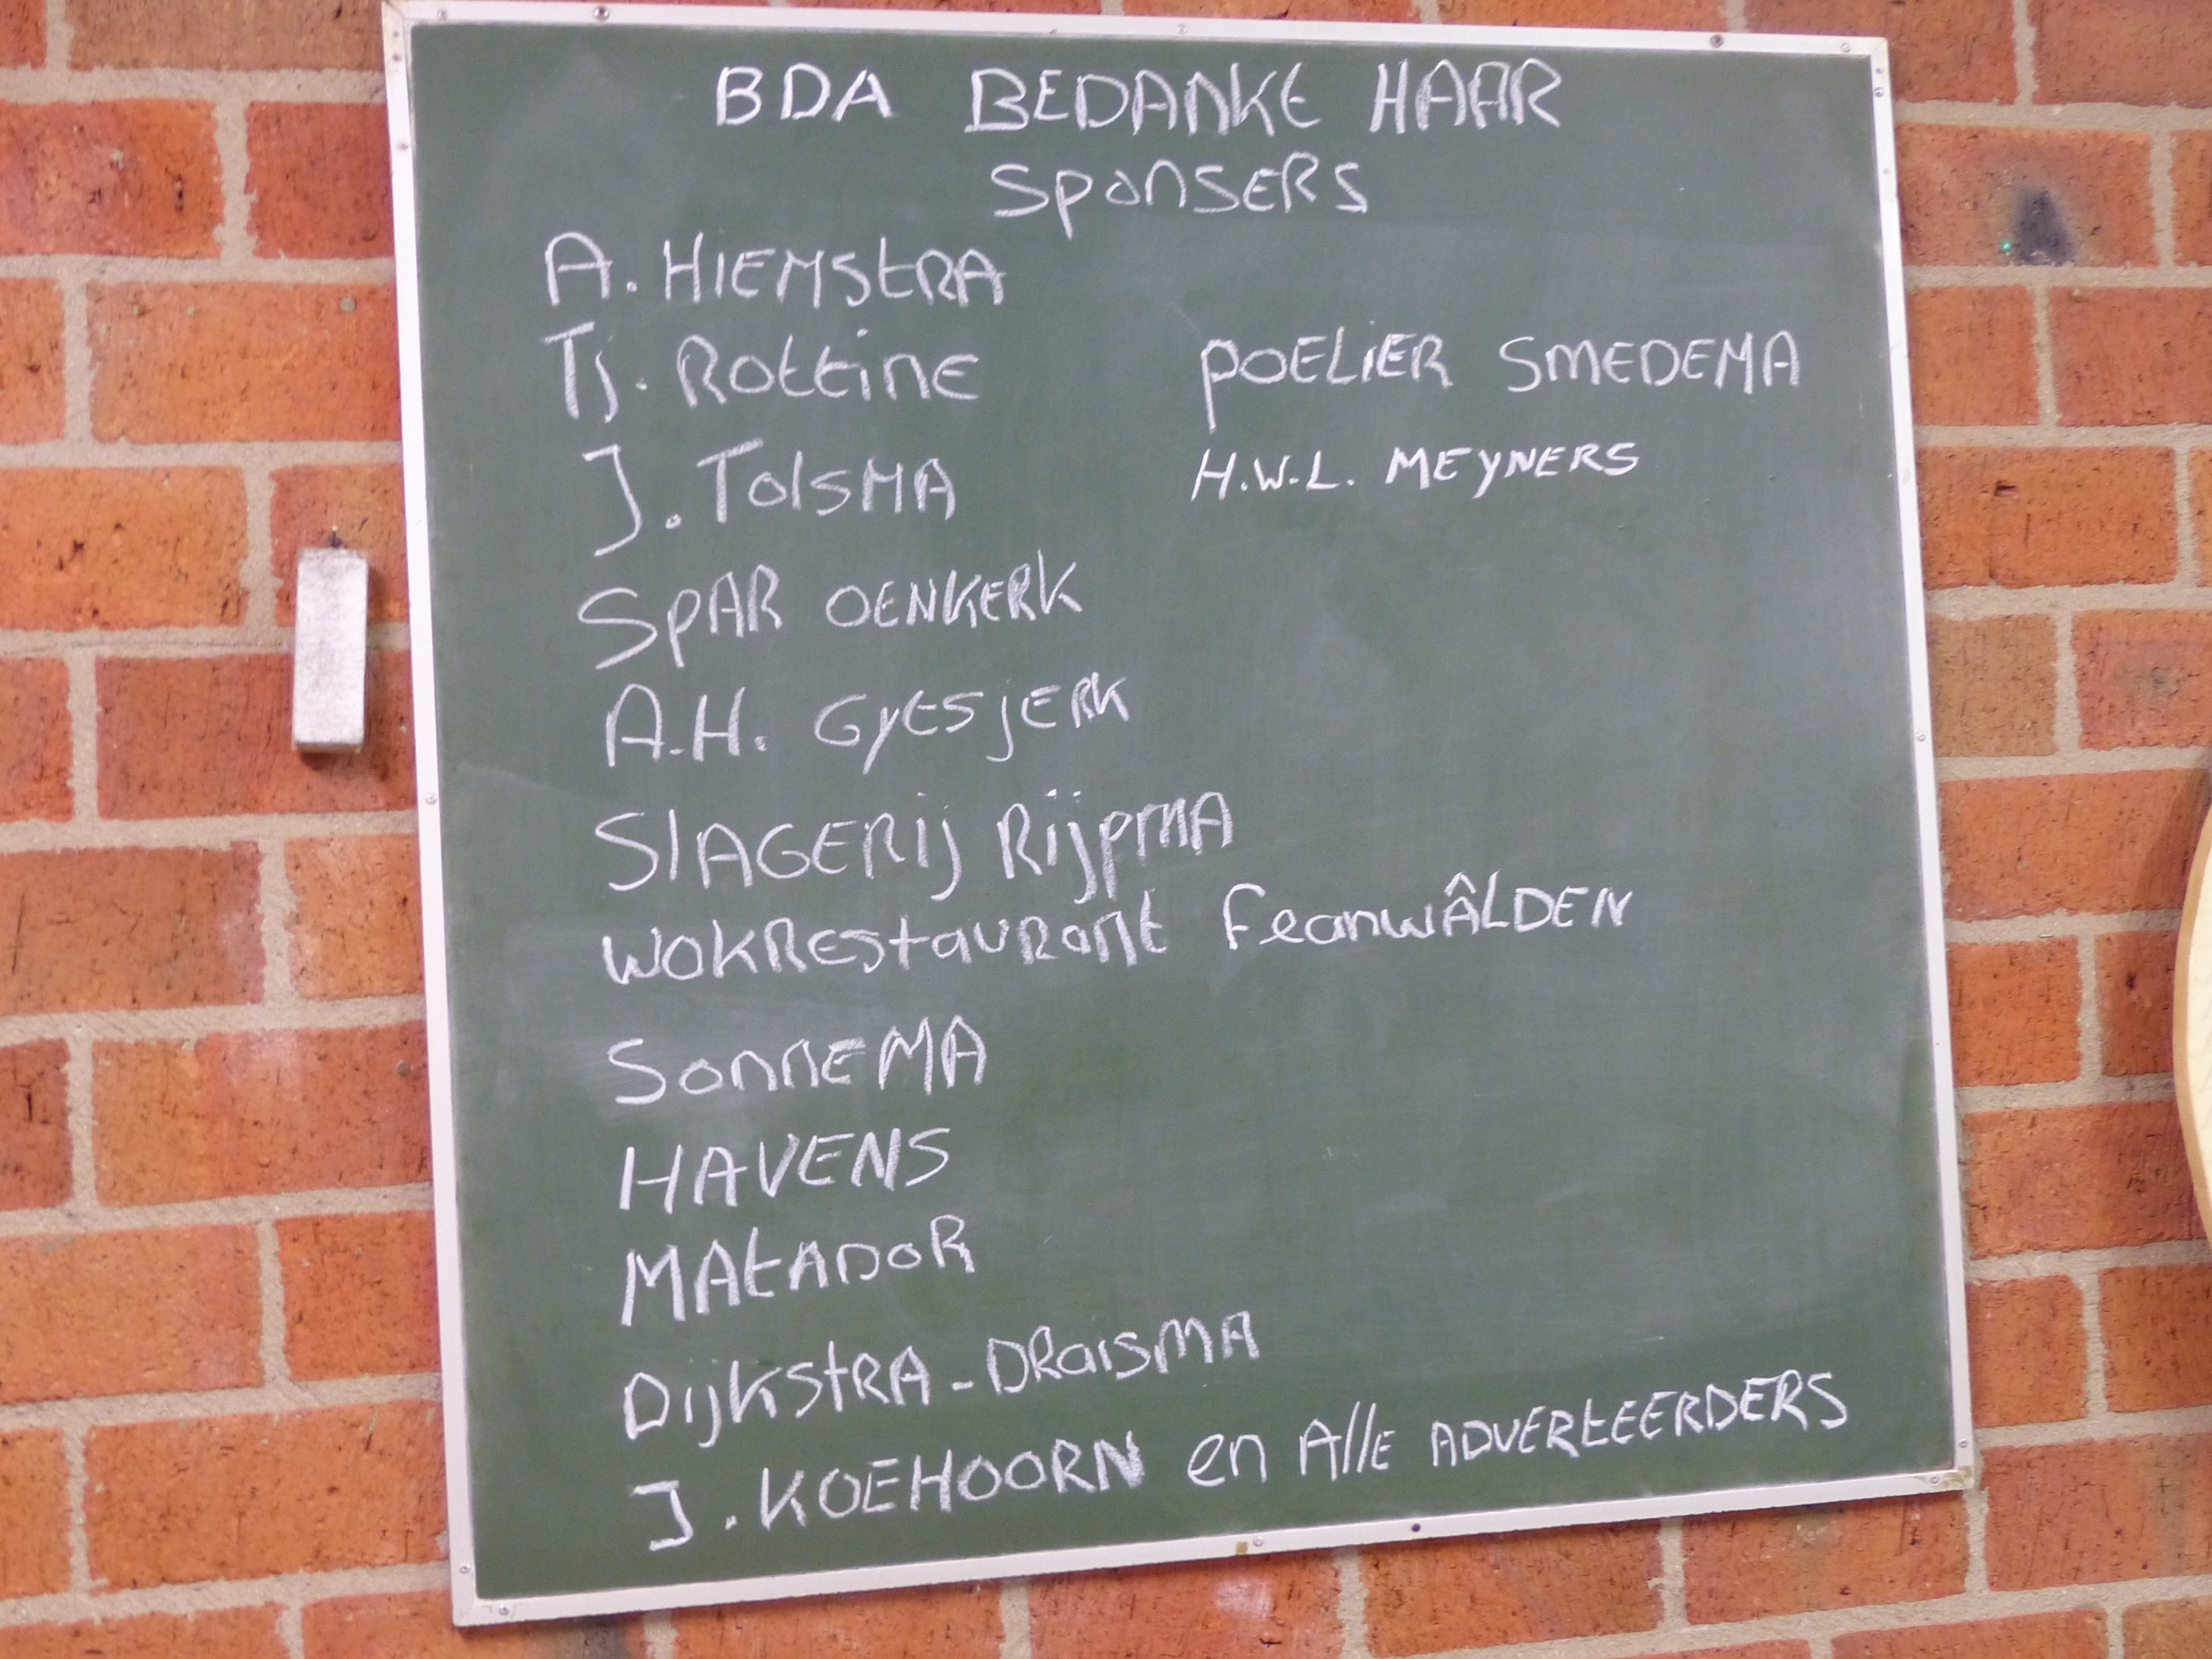 BDA BEDANKE HAAR
SPONSERS
A. HIEMStRA
Tj. Rottine
J. TolsMA
SPAR OENKERK
A.H. GytsjERK
SlAGERij RijpMA
WOKRestauRant feanwÂLDEN
SonnEMA
HAVENS
MAtADOR
DijkstRA - DRaisMA
J. KOEHOORN en AllE ADVERtEERDERS
POELiER SMEDEMA
H.W.L. MEYNERS